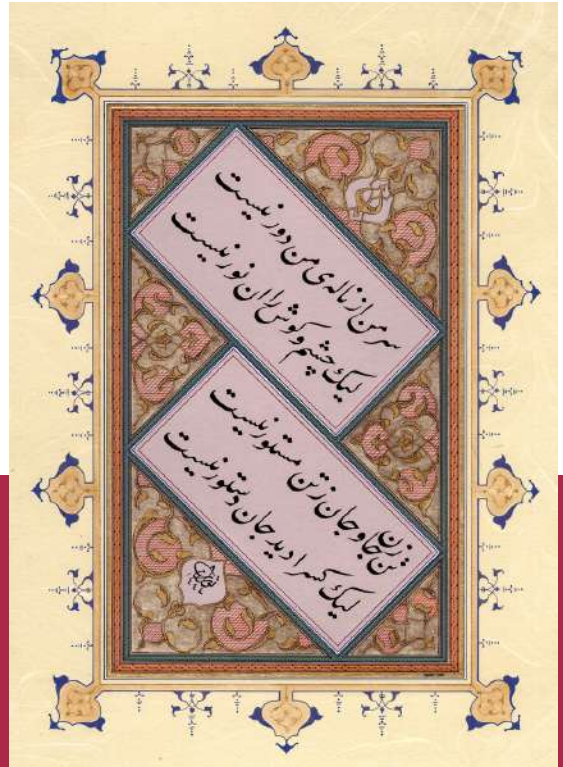 سر من از ناله‌ی من دور نیست
لیک چشم و گوش را آن نور نیست
تن ز جان و جان ز تن مستور نیست
لیک کس را دید جان دستور نیست